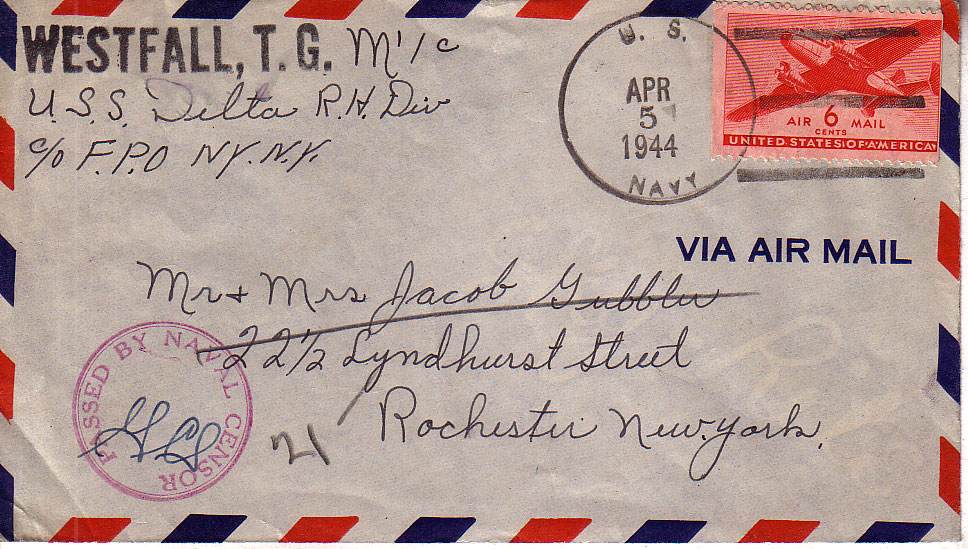 WESTFALL, T. G. M1/c
U.S.S. Delta R.H. Div
c/o F.P.O NY. N.Y.
U. S.
APR
5
1944
NAVY
AIR 6 MAIL
CENTS
UNITED STATES OF AMERICA
VIA AIR MAIL
Mr + Mrs Jacob
22 1/2 Lyndhurst Street
Rochester New York.
PASSED BY NAVAL CENSOR
21